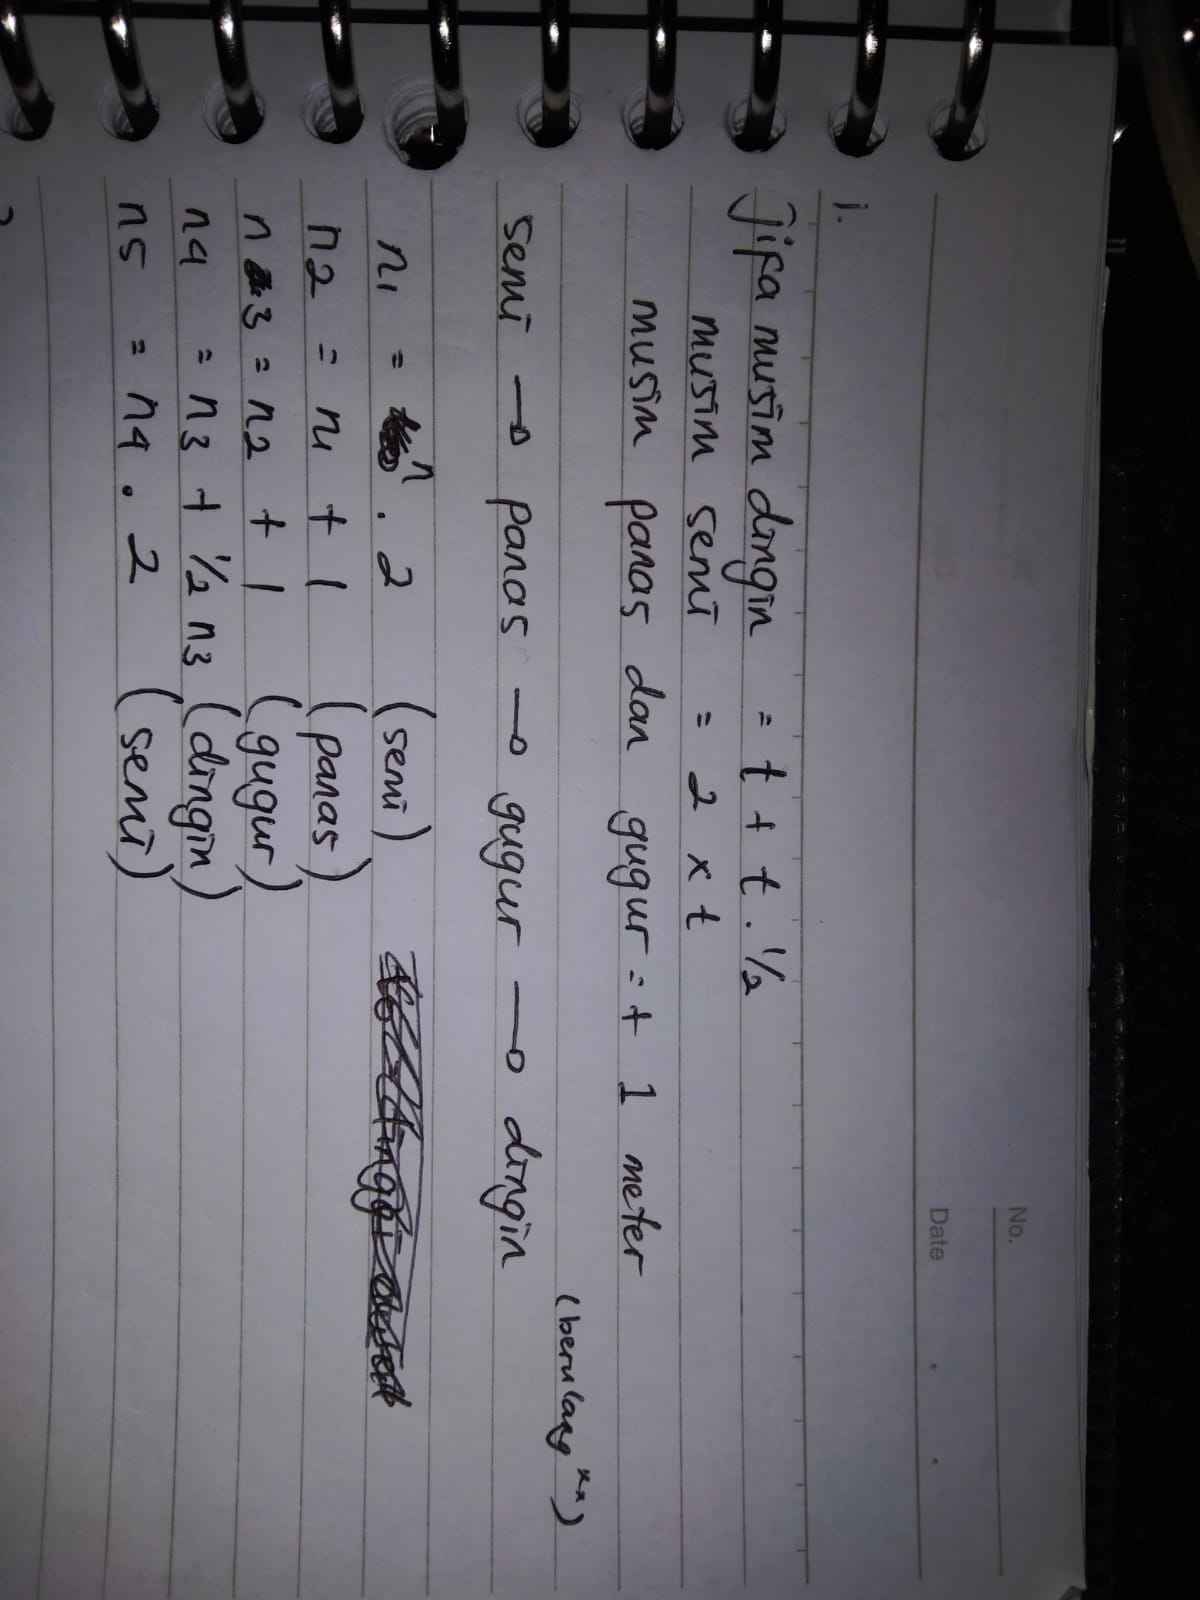 No.
Date
1.
jika musim dingin = t + t . 1/2
musim semi = 2 x t
musim panas dan gugur = + 1 meter
(berulang xx)
semi → panas → gugur → dingin
n1 = n . 2 (semi)
n2 = n1 + 1 (panas)
n3 = n2 + 1 (gugur)
n4 = n3 + 1/2 n3 (dingin)
n5 = n4 . 2 (semi)